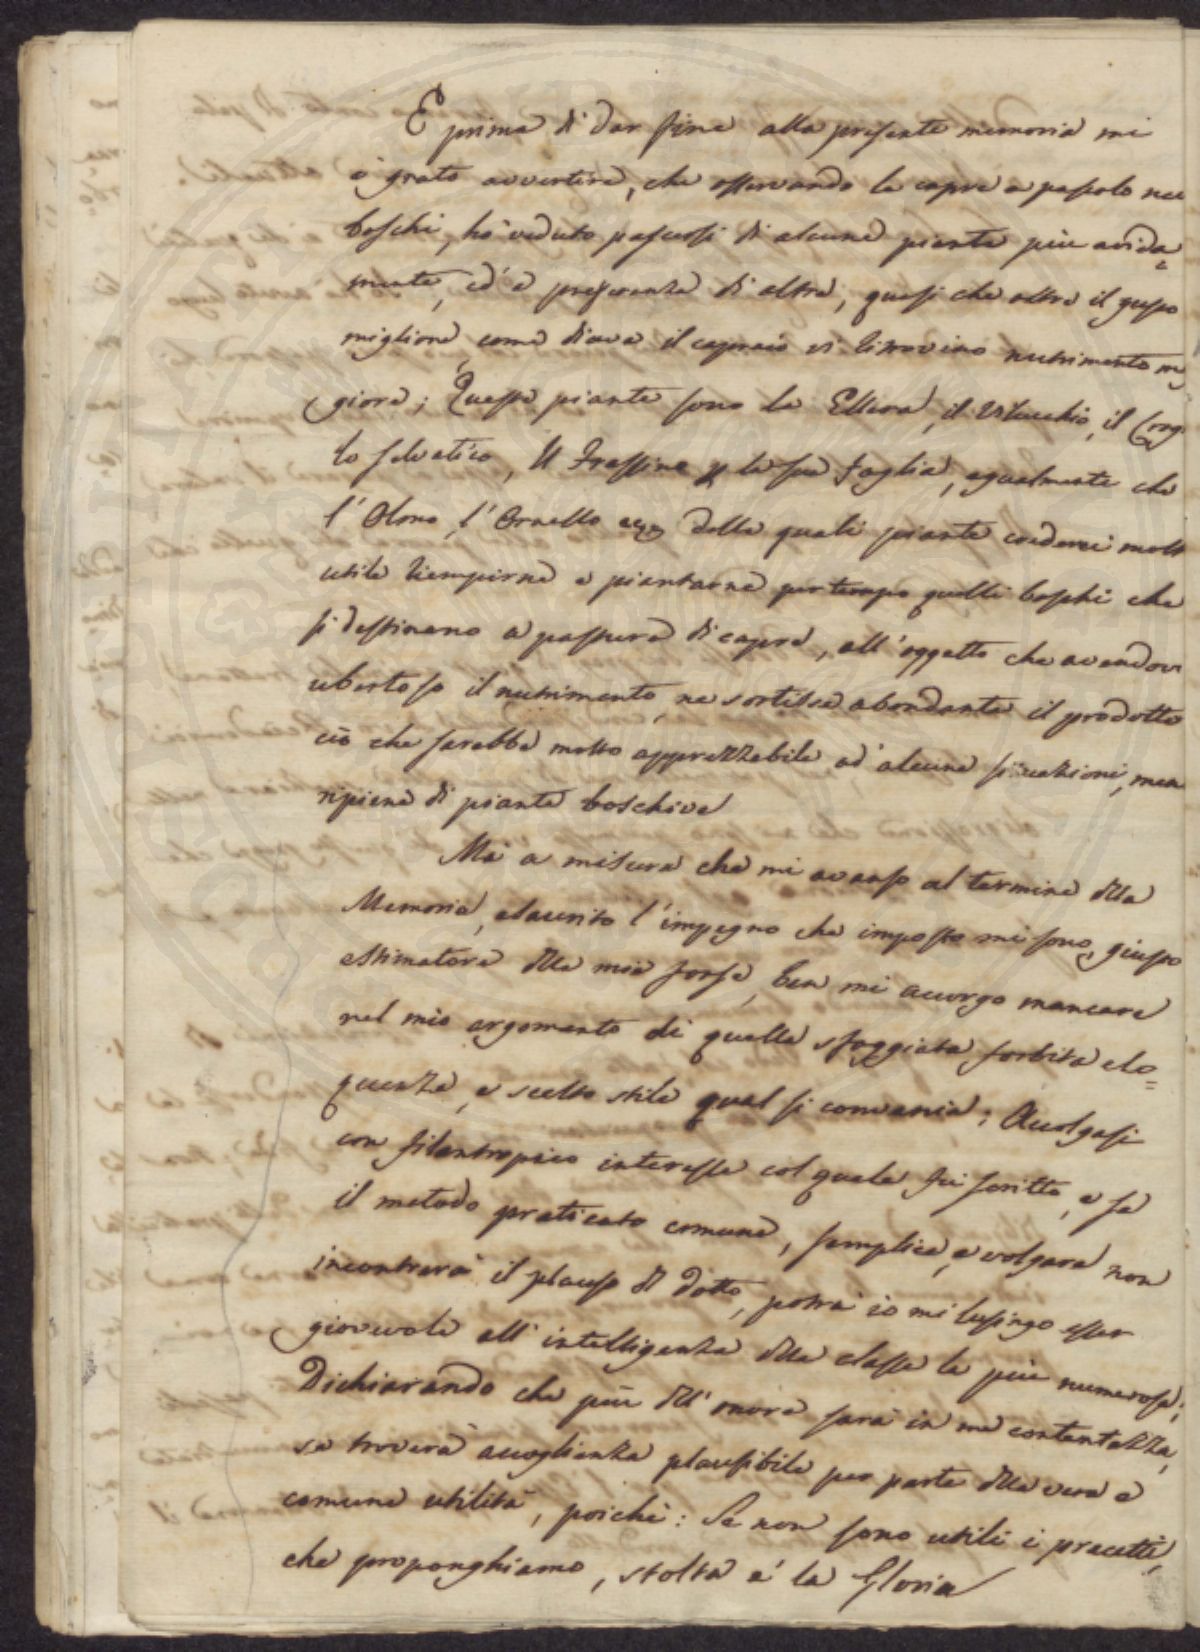 E prima di dar fine alla presente memoria mi
è grato avvertire, che osservando le capre a pascolo nei
boschi, ho veduto pascersi di alcune piante più avida=
mente, ed a preferenza di altre, quasi che oltre il gusto
migliore, come diceva il capraio vi ritrovino nutrimento mi
gliore; Queste piante sono la Ellera, il Vilucchio, il
lo selvatico, Il Frassine la sua foglia, egualmente che
l'Olmo, l'Ornello delle quali piante crederei molto
utile riempirne e piantarne per tempo quelli boschi che
si destinano a pastura di capre, all'oggetto che avendovi
ubertoso il nutrimento, ne sortisca abondante il prodotto
ciò che sarebbe molto apprezzabile ad alcune situazioni, men
ripiene di piante boschive
Ma a misura che mi avanso al termine della
Memoria, esaurito l'impegno che imposto mi sono, giusto
estimatore della mia forsa, ben mi accorgo mancare
nel mio argomento di quella sfoggiata forbita elo=
quenza, e scelto stile qual si convenia; Accolgasi
con filantropico interesse col quale fù scritto, e se
il metodo praticato comune, semplice, e volgare non
incontrerà il plauso di dotto, potrà io mi lusingo esser
giovevole all'intelligenza della classe la più numerosa;
Dichiarando che più dell'onore sarà in me contentezza,
se troverà accoglienza plausibile per parte della vera e
comune utilità, poichè: Se non sono utili i precetti,
che proponghiamo, stolta è la Gloria